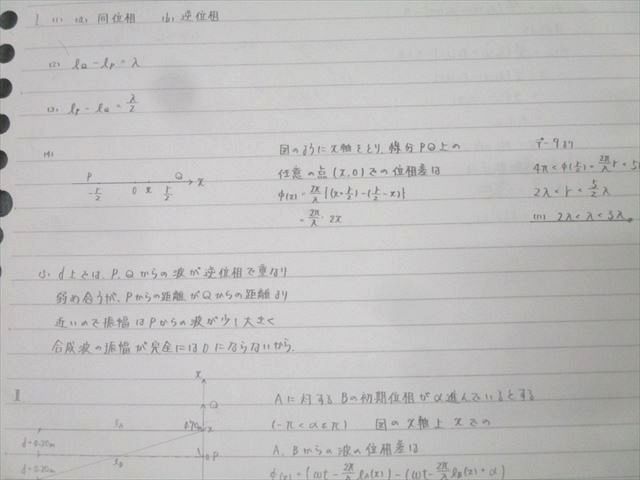 I (1) (a) 同位相 (b) 逆位相
(2) ℓQ − ℓP = λ
(3) ℓP − ℓQ = λ/2
(4)
P Q
−r/2 0 x r/2 x
図のように x軸をとり, 線分PQ上の
任意の点 (x, 0) での位相差は
φ(x) = 2π/λ {(x + r/2) − (r/2 − x)}
= 2π/λ · 2x
データより
4π < φ(r/2) = 2π/λ r = 5
2λ < r < 5/2 λ
(5) d上では, P, Qからの波が逆位相で重なり
弱め合うが, Pからの距離がQからの距離より
近いので振幅はPからの波が少し大きく
合成波の振幅が完全には0にならないから.
II
x
Q
P
d=0.20m
Aに対するBの初期位相がα進んでいるとする
(−π < α ≤ π) 図のx軸上xでの
A, Bからの波の位相差は
φ(x) = (ωt − 2π/λ ℓA(x)) − (ωt − 2π/λ ℓB(x) + α)